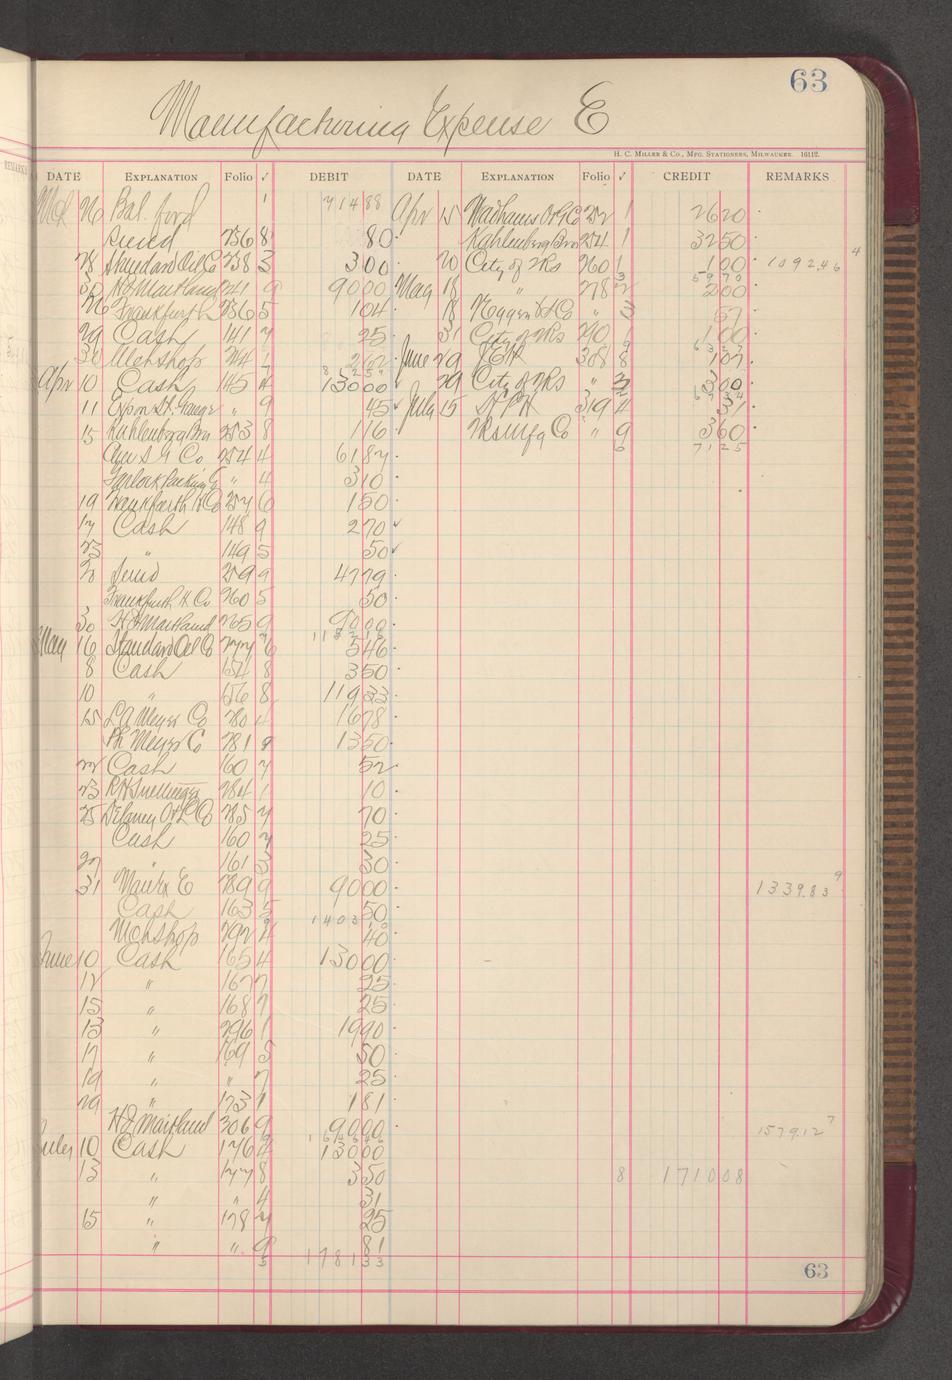 63
Manufacturing Expense E
H. C. Miller & Co., Mfg. Stationers, Milwaukee. 16112.
DATE EXPLANATION Folio √ DEBIT DATE EXPLANATION Folio √ CREDIT REMARKS
26 Bal. ford 1 71488 Apr 15 Wadhams O & G Co 252 1 2620
Sund 236 8 80 Kahlenberg Bro 254 1 3250
28 Standard Oil Co 238 3 300 20 City of 2Rs 260 1 100 1092.46 4
30 H E Maitland 241 9 9000 May 18 " 278 2 200
5970
26 Frankfurth 236 5 104 18 " 3 57
29 Cash 141 7 25 31 City of 2Rs 290 1 100
30 Mchshop 244 1 262 June 29 308 8 107
Apr 10 Cash 145 4 13000 29 City of 2Rs " 3 300
11 " 9 45 July 15 319 4 31
15 Kahlenberg Bro 253 8 116 2Rs Mfg Co " 9 360
254 4 6187 6 7125
Garlock Packing Co " 4 310
19 Frankfurth H Co 257 6 150
17 Cash 148 9 270
23 " 149 5 50
20 Sund 259 9 4779
Frankfurth H Co 260 5 50
30 H E Maitland 265 9 9000
May 16 Standard Oil Co 277 6 546
8 Cash 154 8 350
10 " 156 8 11933
15 L A Meyer Co 280 4 1678
Ph Meyer Co 281 9 1350
22 Cash 160 7 52
23 284 1 10
25 285 7 70
Cash 160 7 25
27 " 161 3 30
31 289 9 9000 1339.83 9
Cash 163 5 50
Mchshop 292 4 40
June 10 Cash 165 4 13000
12 " 167 7 25
15 " 168 7 25
13 " 296 1 1990
17 " 169 5 50
19 " " 7 25
29 " 173 1 181
H E Maitland 306 9 9000 1579.12 7
July 10 Cash 176 4 13000
13 " 177 8 350 8 171008
" " 4 31
15 " 178 7 25
" " 9 81
5 178133
63